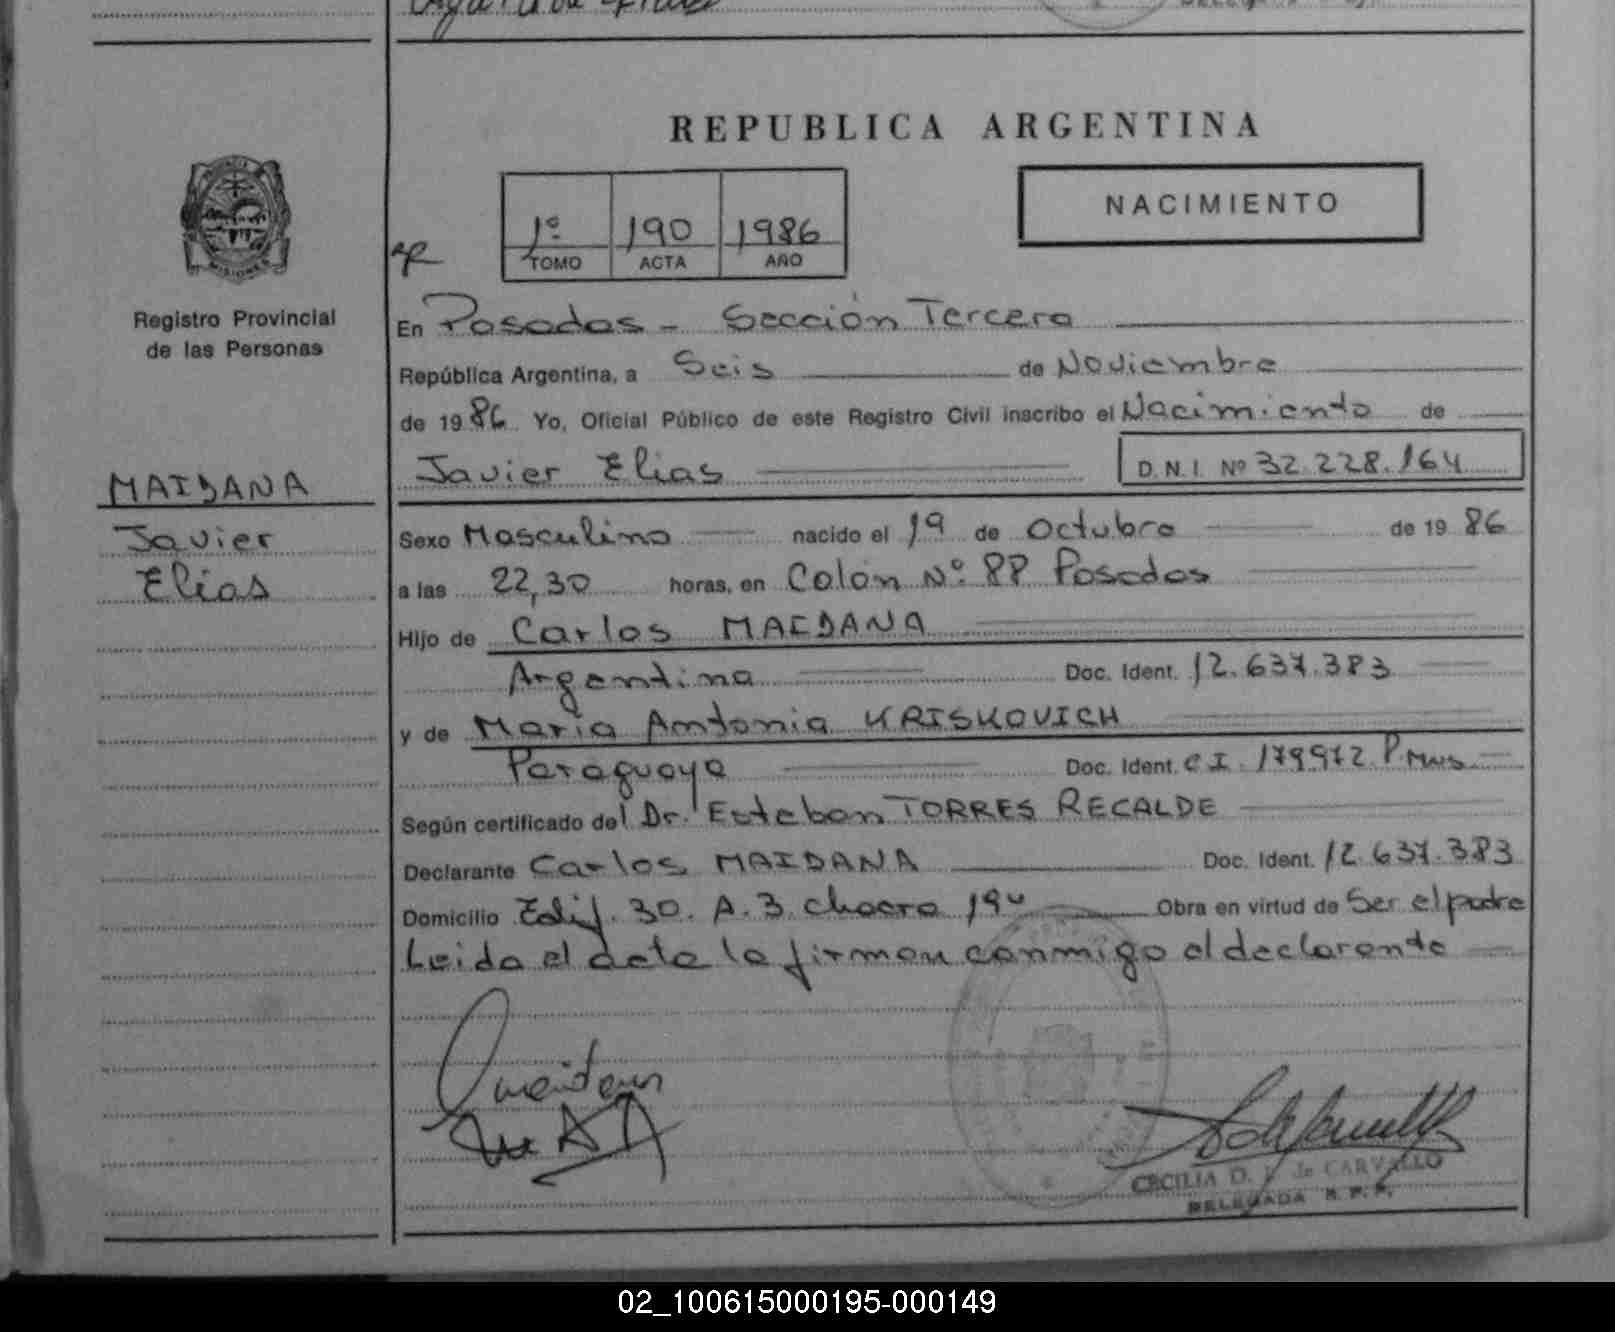 REPUBLICA ARGENTINA
NACIMIENTO
1º 190 1986
TOMO ACTA AÑO
MISIONES
Registro Provincial
de las Personas
En Posadas - Sección Tercera
República Argentina, a Seis de Noviembre
de 1986 Yo, Oficial Público de este Registro Civil inscribo el Nacimiento de
Javier Elias D.N.I. Nº 32.228.164
MAIDANA
Javier
Elias
Sexo Masculino nacido el 19 de Octubre de 19 86
a las 22,30 horas, en Colón Nº 88 Posadas
Hijo de Carlos MAIDANA
Argentina Doc. Ident. 12.637.383
y de María Antonia KRISKOVICH
Paraguaya Doc. Ident. C I. 179972 P. Mnes
Según certificado del Dr. Esteban TORRES RECALDE
Declarante Carlos MAIDANA Doc. Ident. 12.637.383
Domicilio Edif. 30. A. 3. chacra 190 Obra en virtud de Ser el padre
Leida el acta la firman conmigo el declarante
CECILIA D. de CARVALLO
DELEGADA R.P.P.
02_100615000195-000149